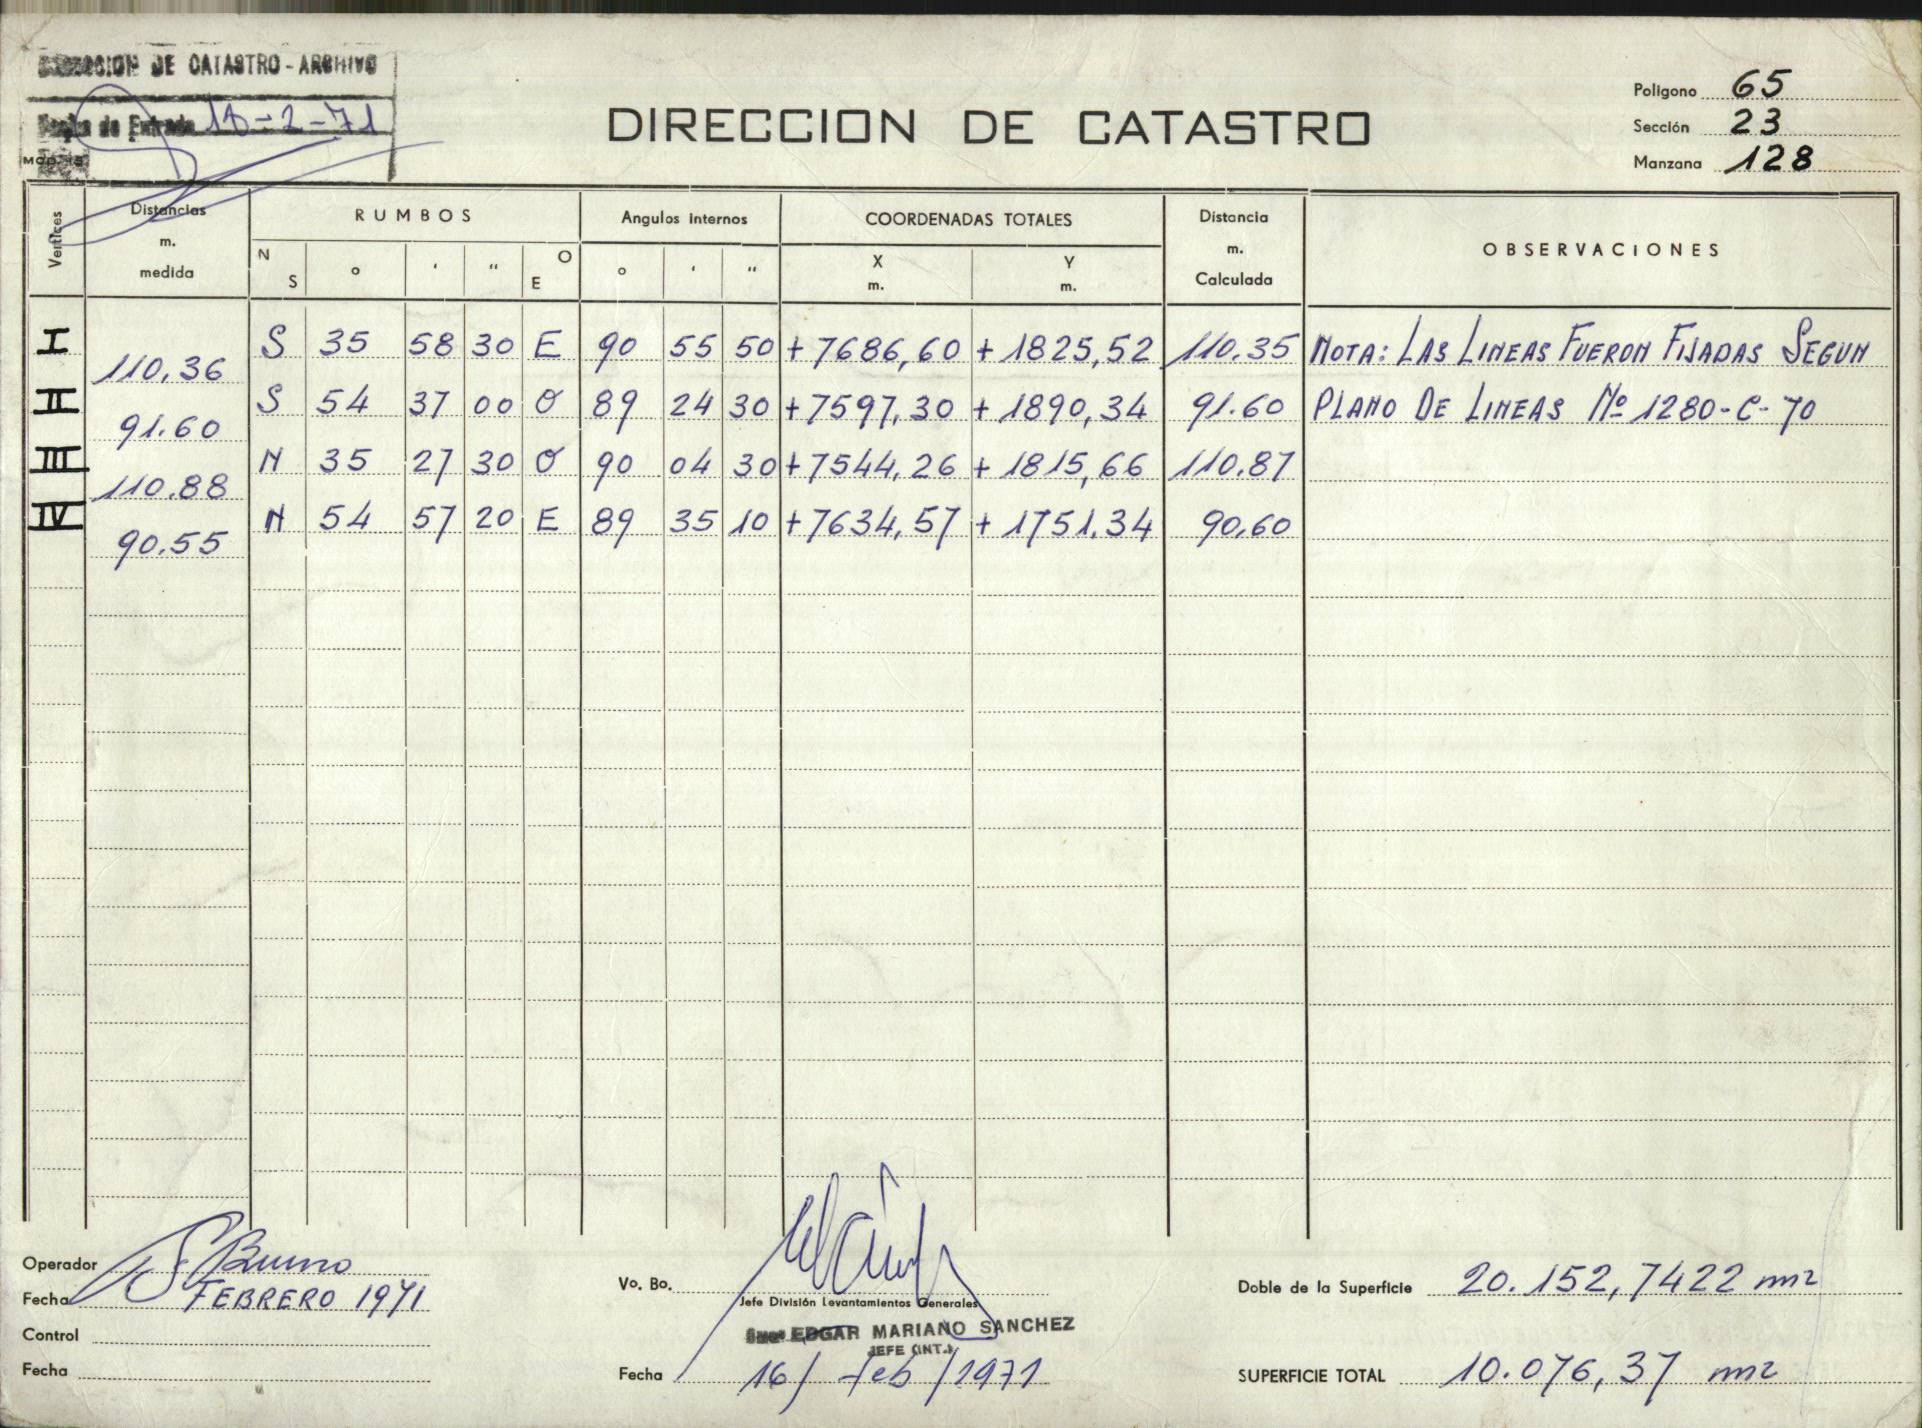 DIRECCION DE CATASTRO - ARCHIVO
Fecha de Entrada 18-2-71
DIRECCION DE CATASTRO
Poligono 65
Sección 23
Manzana 128
Vertices Distancias m. medida RUMBOS Angulos internos COORDENADAS TOTALES Distancia m. Calculada OBSERVACIONES
N S ° ' " O E ° ' " X m. Y m.
I S 35 58 30 E 90 55 50 +7686,60 +1825,52 110.35 NOTA: LAS LINEAS FUERON FIJADAS SEGUN
110,36
II S 54 37 00 O 89 24 30 +7597,30 +1890,34 91.60 PLANO DE LINEAS Nº 1280-C-70
91.60
III N 35 27 30 O 90 04 30 +7544,26 +1815,66 110.87
110.88
IV N 54 57 20 E 89 35 10 +7634,57 +1751,34 90,60
90.55
Operador Bruno
Fecha FEBRERO 1971
Control
Fecha
Vo. Bo.
Jefe División Levantamientos Generales
EDGAR MARIANO SANCHEZ
JEFE (INT.)
Fecha 16/feb/1971
Doble de la Superficie 20.152,7422 m2
SUPERFICIE TOTAL 10.076,37 m2